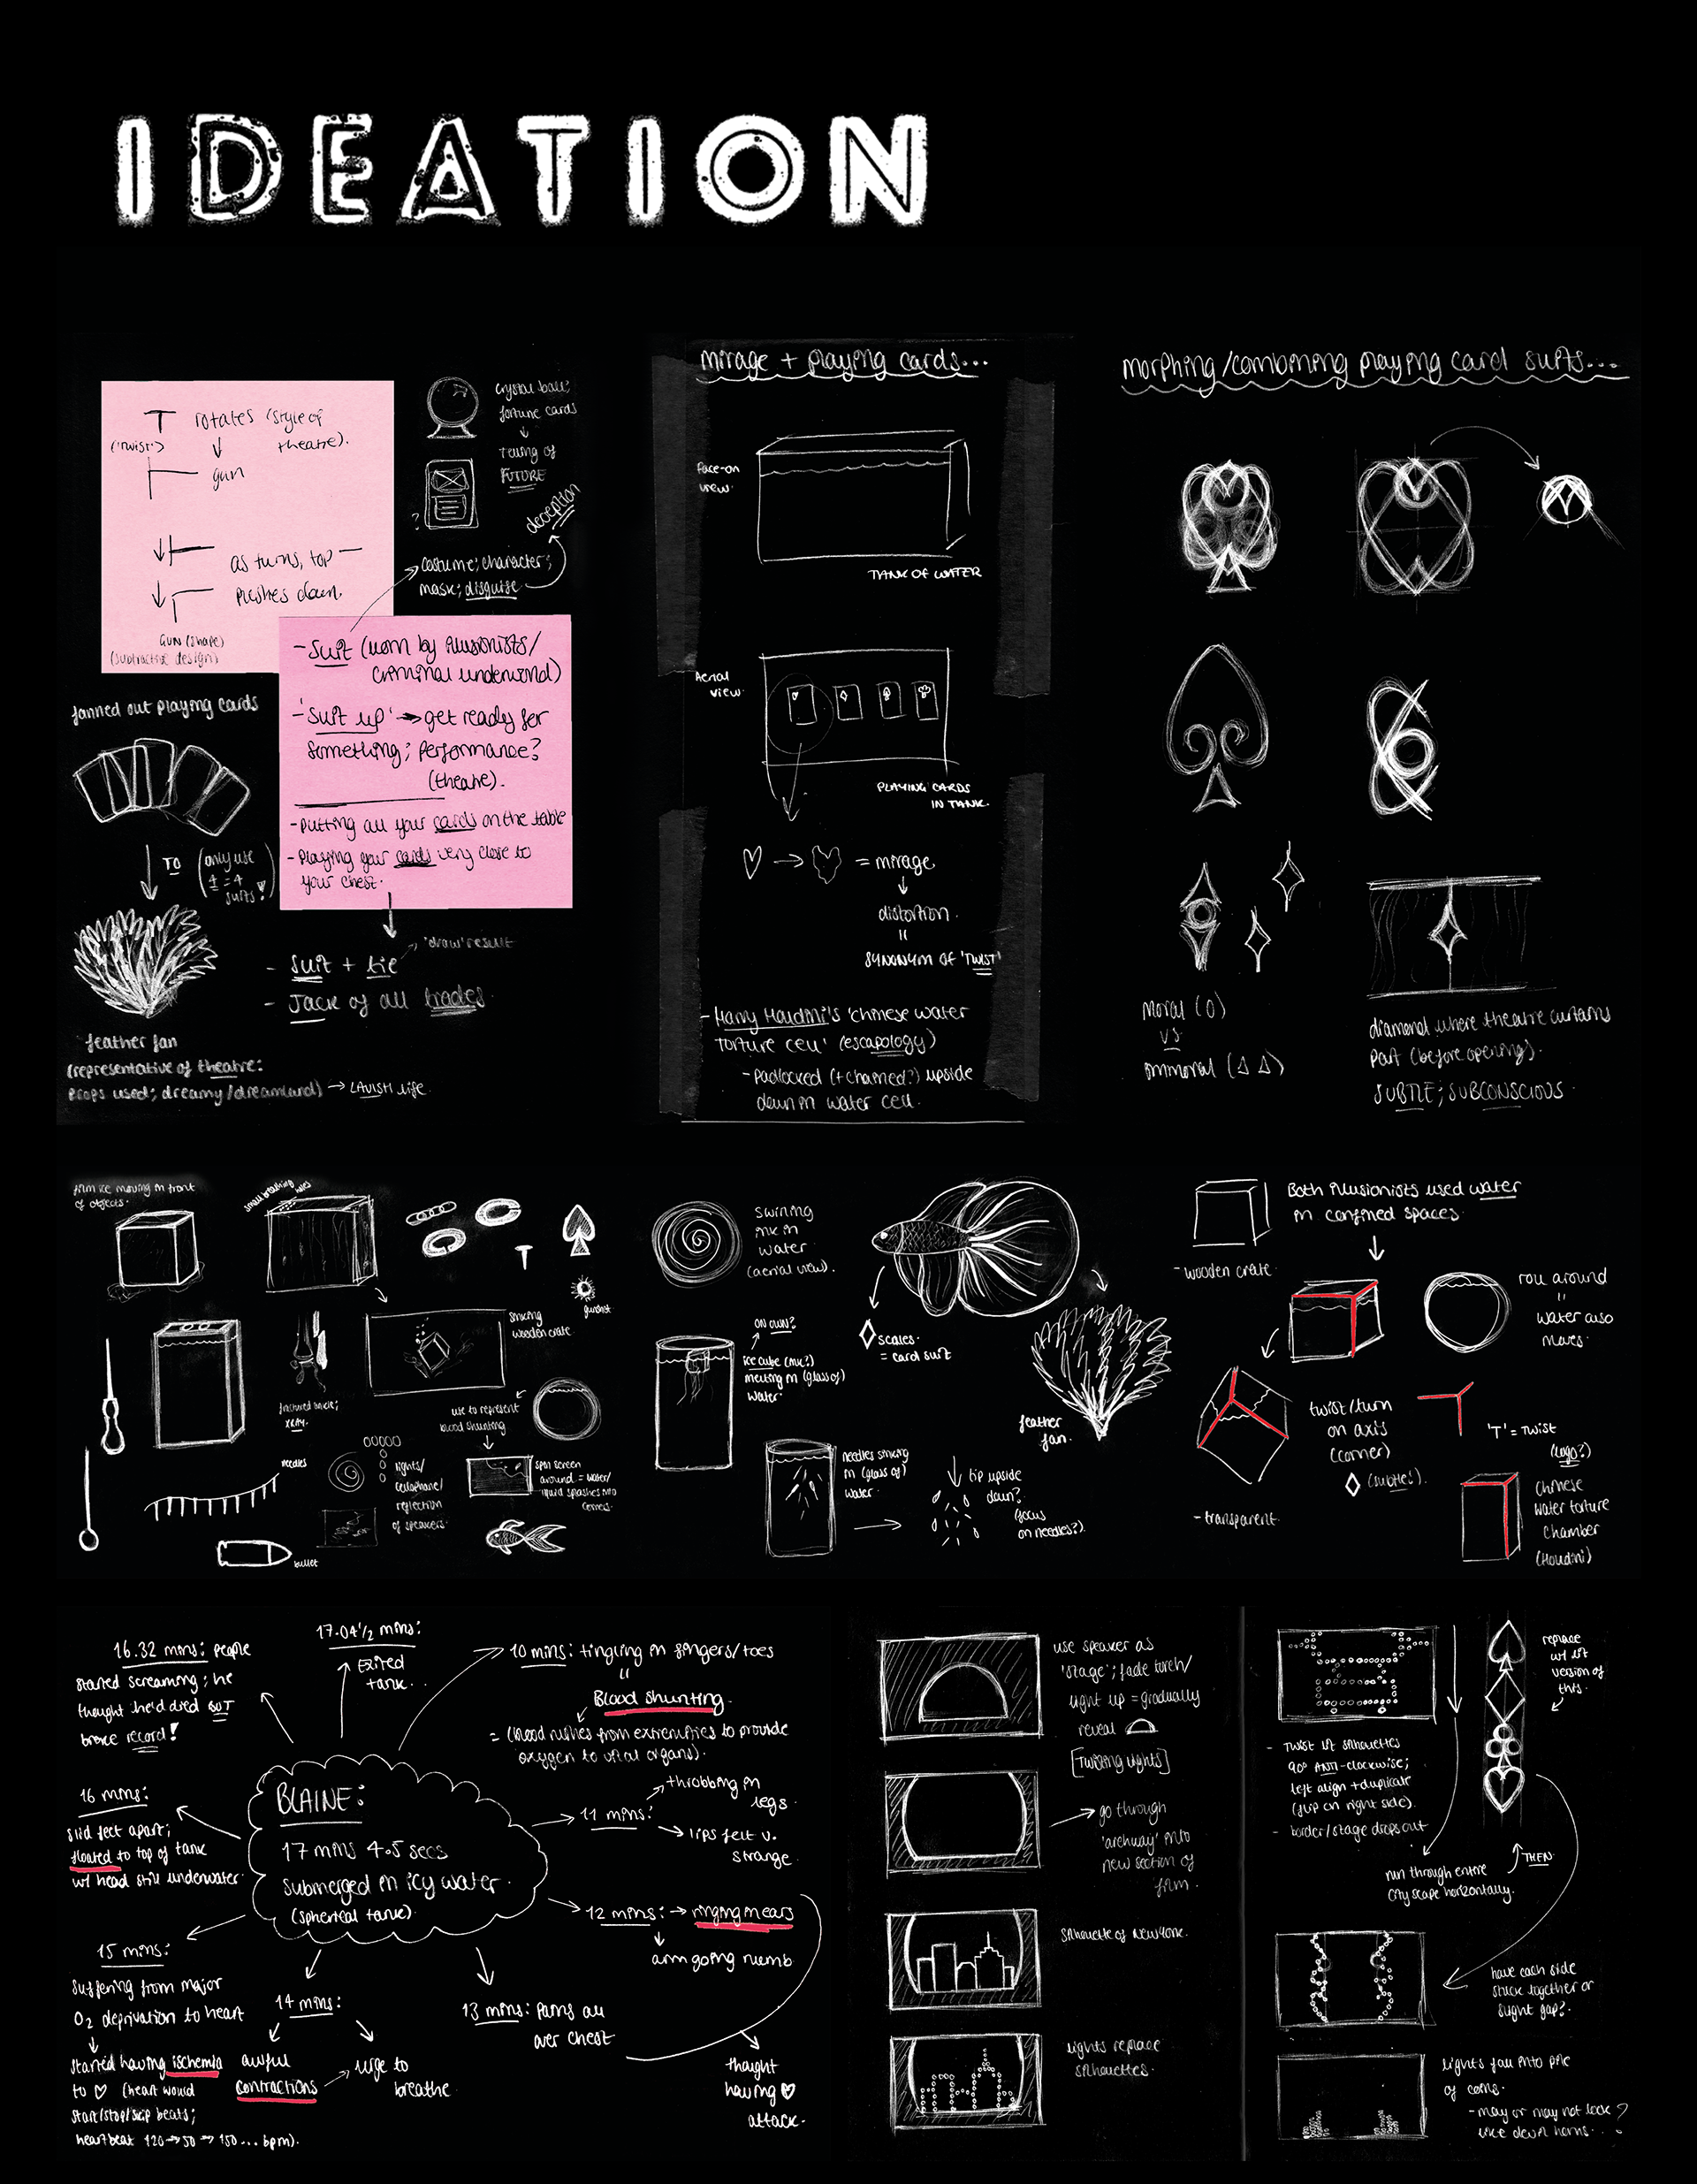 IDEATION
T rotates (style of
('Twist') theatre).
gun
as turns, top —
pushes down.
GUN (shape)
(subtractive design)
crystal ball;
fortune cards
telling of
FUTURE
?
deception
costume; character;
mask; disguise
- Suit (worn by illusionists/
criminal underworld)
- 'Suit up' → get ready for
something; performance?
(theatre).
- putting all your cards on the table
- Playing your cards very close to
your chest.
fanned out playing cards
TO
(only use
4 = 4
suits!)
feather fan
(representative of theatre:
props used; dreamy/dreamland) → LAVISH life.
'draw' result
- Suit + tie
- Jack of all trades.
mirage + playing cards...
Face-on
view.
TANK OF WATER
Aerial
view.
PLAYING CARDS
IN TANK.
= mirage
distortion.
=
SYNONYM OF 'TWIST'
- Harry Houdini's 'chinese water
torture cell' (escapology)
- Padlocked (+ chained?) upside
down in water cell.
morphing/combining playing card suits...
Moral (O)
VS
Immoral (Δ Δ)
diamond where theatre curtains
part (before opening).
SUBTLE; SUBCONSCIOUS.
film ice moving in front
of objects.
small breathing holes
T
gunshot
sinking
wooden crate.
fractured ankle;
XRAY.
use to represent
blood shunting
needles
lights/
cellophane/
reflection
of speakers.
spin screen
around = water/
liquid splashes into
corners.
bullet
swirling
ink in
water
(aerial view).
ON OWN?
ice cube (ink?)
melting in (glass of)
water
scales.
= card suit
feather
fan.
needles sinking
in (glass of)
water.
tip upside
down?
(focus
on needles?).
Both illusionists used water
in confined spaces.
- wooden crate.
roll around
=
water also
moves.
twist/turn
on axis
(corner)
(subtle!).
- transparent.
'T' = Twist
(logo?)
Chinese
water torture
chamber
(Houdini)
BLAINE:
17 mins 4.5 secs
submerged in icy water.
(spherical tank).
16.32 mins: people
started screaming; he
thought he'd died BUT
broke record!
17.04½ mins:
Exited
tank.
10 mins: tingling in fingers/toes
=
Blood shunting.
= (blood rushes from extremities to provide
oxygen to vital organs).
11 mins:
throbbing in
legs.
lips felt v.
strange.
12 mins: → ringing in ears
arm going numb
13 mins: pains all
over chest
thought
having ♡
attack.
14 mins:
awful
contractions
urge to
breathe
15 mins:
suffering from major
O₂ deprivation to heart
started having ischemia
to ♡ (heart would
start/stop/skip beats;
heartbeat 120 → 50 → 150... bpm).
16 mins:
slid feet apart;
floated to top of tank
w/ head still underwater.
use speaker as
'stage'; fade torch/
light up = gradually
reveal
[Twisting Lights]
go through
'archway' into
new section of
film.
silhouette of New York.
lights replace
silhouettes.
replace
w/ lit
version of
this.
- Twist lit silhouettes
90° ANTI-clockwise;
left align + duplicate
(flip on right side).
- border/stage drops out
run through entire
cityscape horizontally.
THEN
have each side
stuck together or
slight gap?
lights fall into pile
of coins.
- may or may not look
like devil horns...?